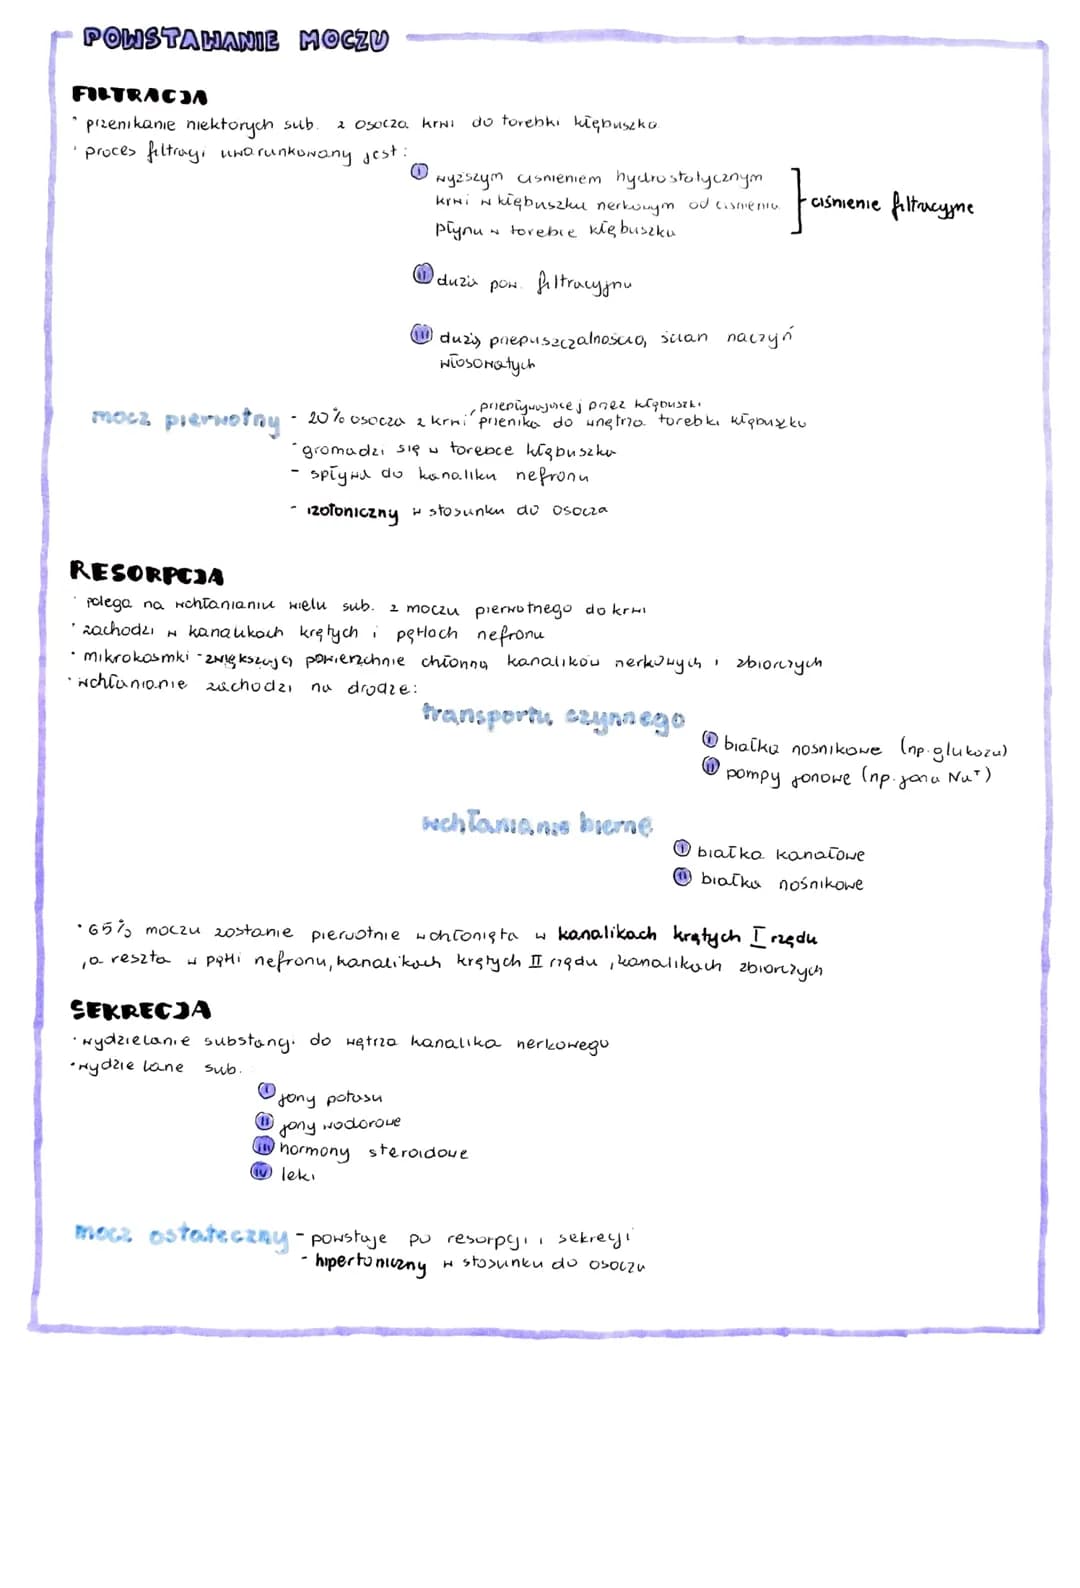 POWSTAWANIE MOCZU
FILTRACJA
• przenikanie niektorych sub. z osocza krwi do torebki kłębuszka
• proces filtracji uwarunkowany jest:
I wyższym ciśnieniem hydrostatycznym
krwi w kłębuszku nerkowym od ciśnienia
płynu w torebce kłębuszka
ciśnienie filtracyjne
II dużą pow. filtracyjną
III dużą przepuszczalnością ścian naczyń
włosowatych
przepływającej przez kłębuszki
mocz pierwotny - 20% osocza z krwi przenika do wnętrza torebki kłębuszka
- gromadzi się w torebce kłębuszka
- spływa do kanalika nefronu
- izotoniczny w stosunku do osocza
RESORPCJA
• polega na wchłanianiu wielu sub. z moczu pierwotnego do krwi
• zachodzi w kanalikach krętych i pętlach nefronu
• mikrokosmki - zwiększają powierzchnie chłonną kanalików nerkowych i zbiorczych
• wchłanianie zachodzi na drodze:
transportu czynnego
I białka nosnikowe (np. glukoza)
II pompy jonowe (np. jona Na⁺)
wchłanianie bierne
I białka kanałowe
II białka nośnikowe
• 65% moczu zostanie pierwotnie wchłonięta w kanalikach krętych I rzędu
, a reszta w pętli nefronu, kanalikach krętych II rzędu, kanalikach zbiorczych
SEKRECJA
• wydzielanie substancji do wętrza kanalika nerkowego
• wydzielane sub.
I jony potasu
II jony wodorowe
III hormony steroidowe
IV leki
mocz ostateczny - powstaje po resorpcji i sekrecji
- hipertoniczny w stosunku do osocza